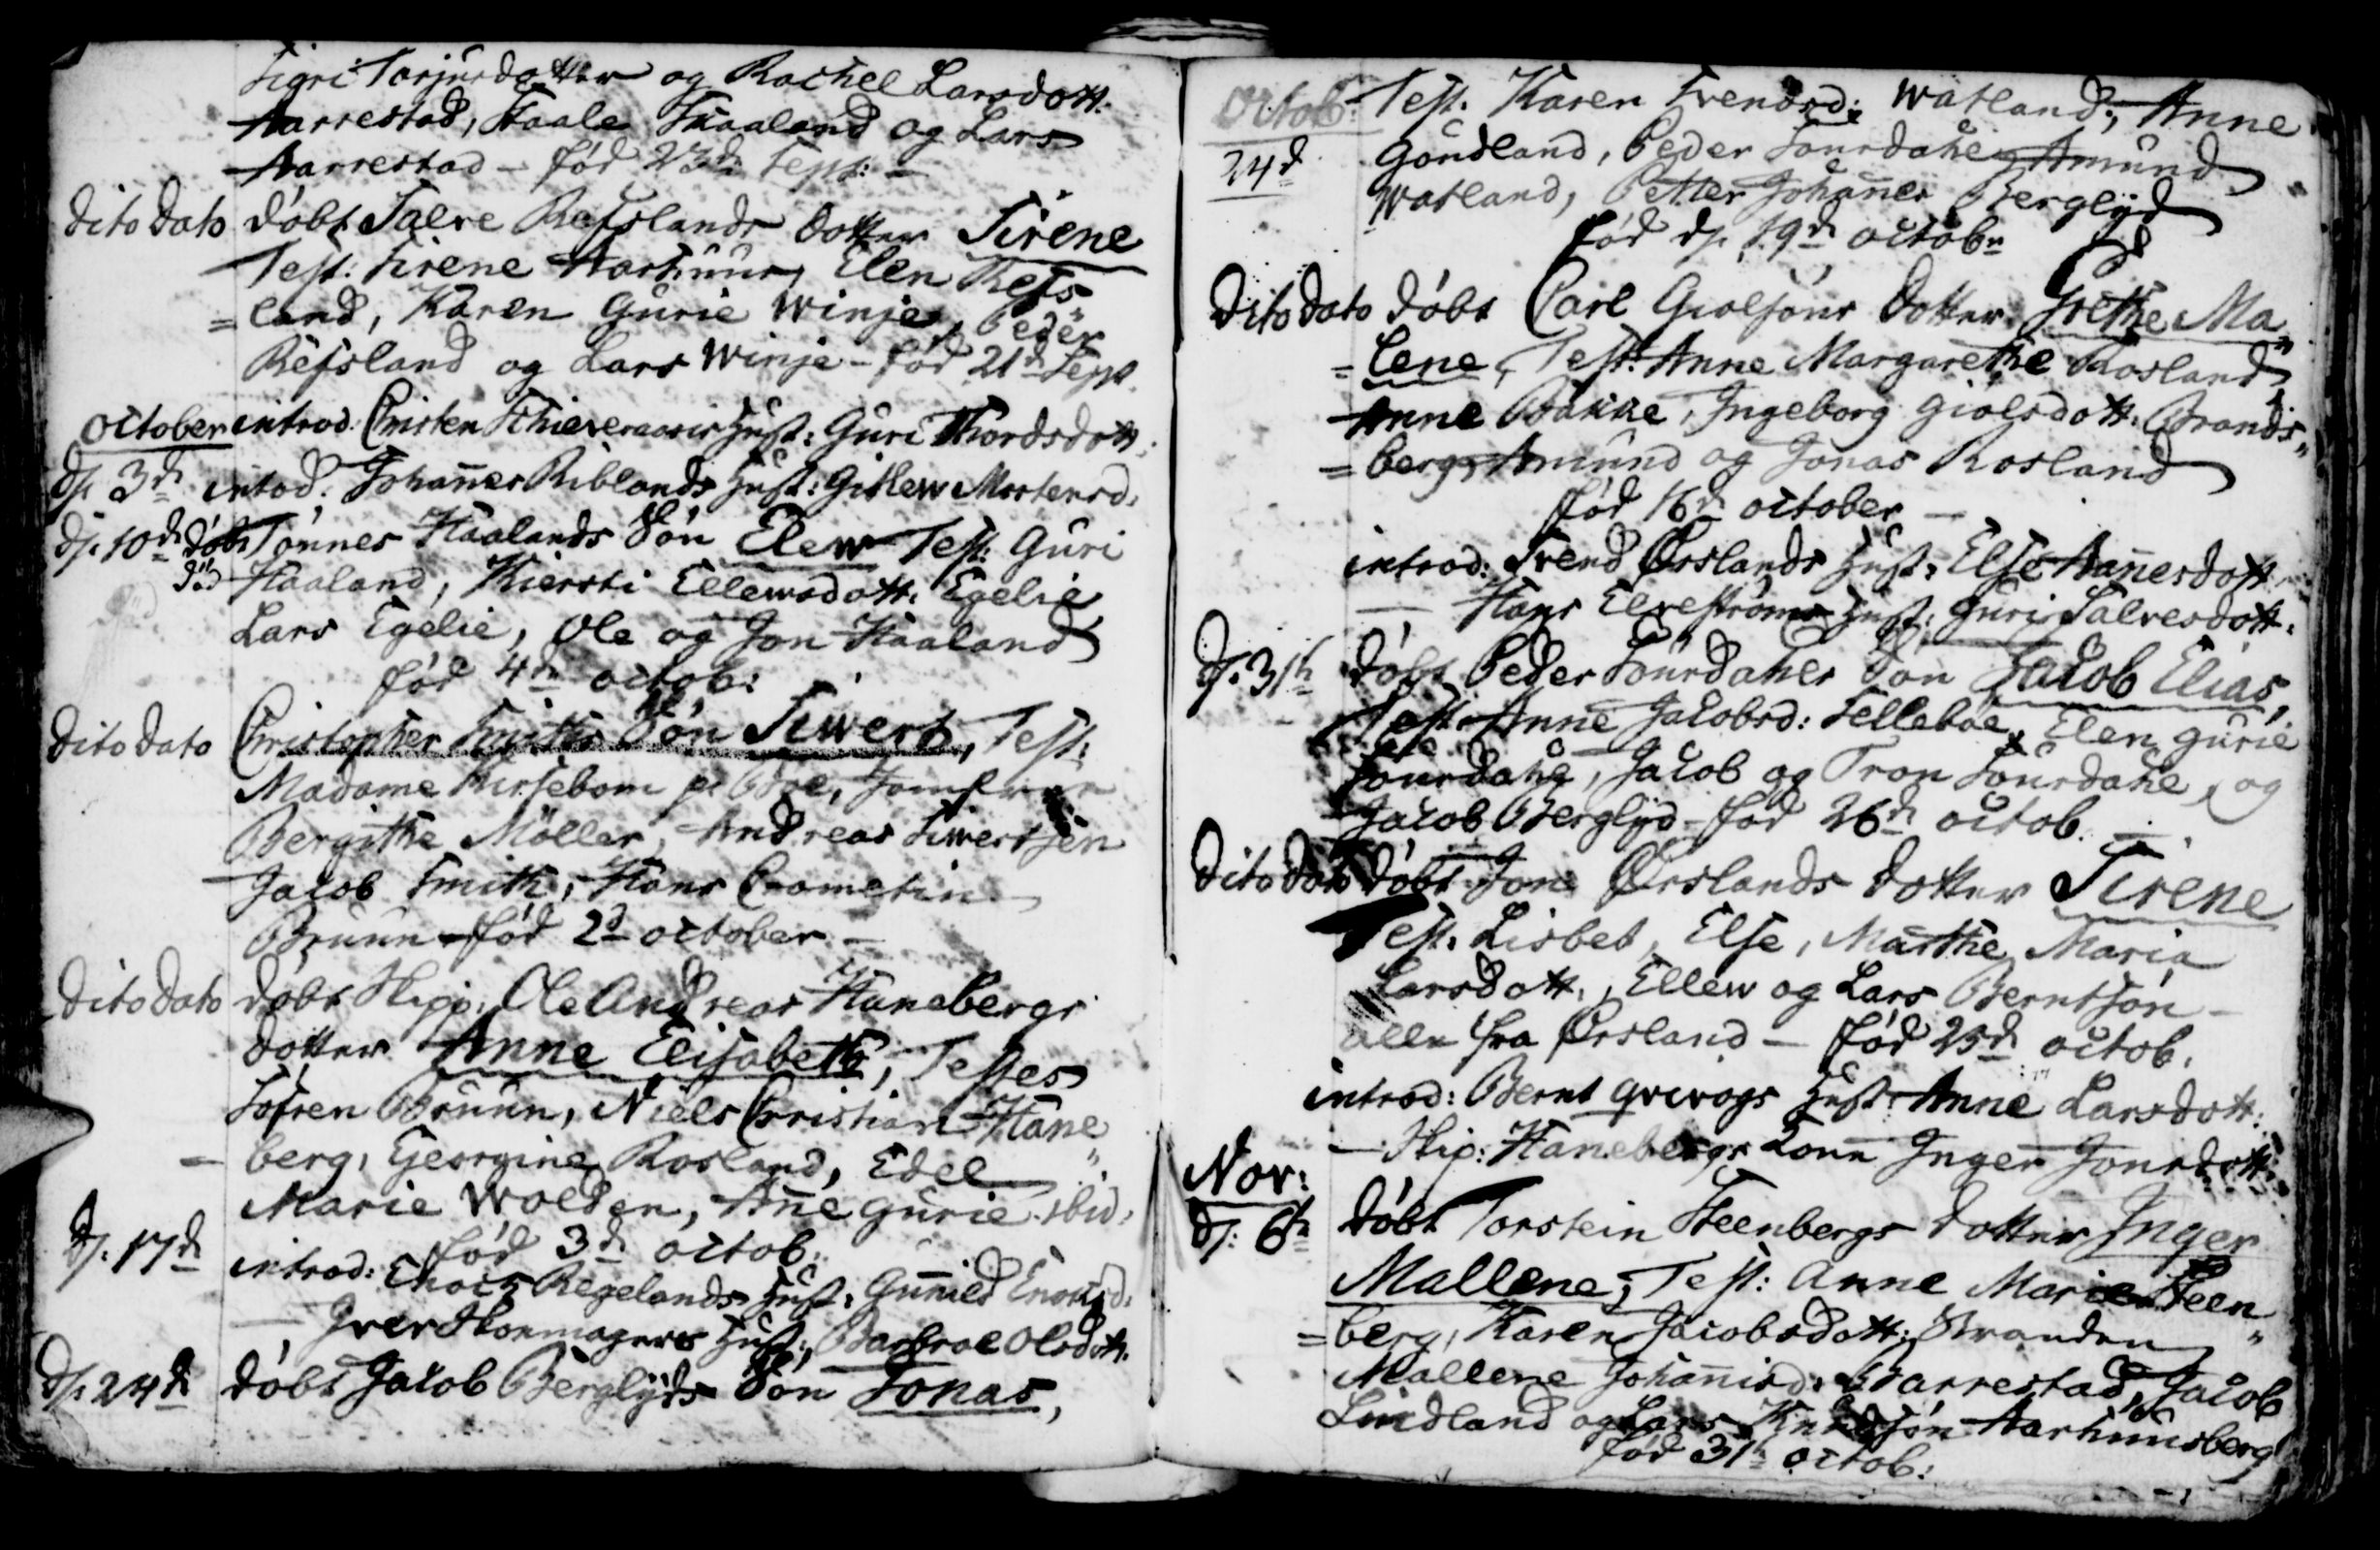 Sigri Tarjusdotter og Rachel Larsdott.
Aarrestad, Staale Skaaland og Lars
Aarrestad - fød 23d Sept: -
Dito Dato døbt Salve Refslands dotter Sirene
Test: Sirene Aarhuus, Elen Refs„
=land, Karen Gurie Winje, Peder
Refsland og Lars Winje - fød 21d Sept.
October introd: Christen Hust: Guri Thordsdott.
d. 3d intod: Johañes Riblands Hust: Gitlew Mortensd.
d. 10d døbt Tønnes Haalands Søn Elew Test: Guri
Haaland, Kiersti Ellewsdott. Egelie
Lars Egelie, Ole og Jon Haaland
fød 4de octob:
Dito Dato Christopher Smiths Søn Siwert, Test:
Madame Kirsebom pa Boe, Jomfrue
Bergithe Møller, Andreas Siwertsen
Jacob Smith, Hans Crometin
Bruun - fød 2d october -
Dito Dato døbt Skipp. Ole Andreas Hanebergs
dotter Anne Elisabeth, Testes
Søfren Bruun, Niels Christian Hane„
=berg, Georgine Rosland, Edel
Marie Wolden, Añe Gurie ibid.
fød 3d octob.
d. 17d introd: Enoch Regelands Hust. Guñild Enochsd.
— Iver Skomagers Hust. Barbroe Olsdott.
d. 24d døbt Jacob Berglyds Søn Jonas,
Octob: Test. Karen Svendsd: Watland, Anne
24d Gondland, Peder Suurdahl, Amund
Watland, Petter Johañes Berglyd
fød d. 19d octobr
Dito Dato døbt Carl Giølsøns dotter Grethe Ma„
=lene, Test: Anne Margarethe Rosland
Anne Bakke, Ingeborg Giølsdott: Brands„
=berg, Amund og Jonas Rosland
fød 16d october —
introd: Svend Ørslands Hust. Else Hañesdott.
— Hans Elvestrøms Hust. Guri Salvesdott.
d. 31h døbt Peder Suurdahls Søn Jacob Elias,
Test. Anne Jacobsd: Selleboe, Elen Gurie
Suurdahl, Jacob og Tron Suurdahl, og
Jacob Berglyd - fød 26d octob.
Dito Dato døbt Jon Ørslands dotter Sirene
Test. Lisbet, Else, Marthe Maria
Larsdott., Ellew og Lars Berntsøn -
alle fra Ørsland - fød 25d octob.
introd: Bernt Hust. Anne Larsdott:
— Skip: Hanebergs Kone Inger Jonsdott.
Nov:
d: 6te døbt Torstein Steenbergs dotter Inger
Mallene, Test: Anne Marie Steen„
=berg, Karen Jacobsdott: Stranden
Mallene Johañisd: Barrestad, Jacob
Lindland og Lars Knudsøn Aarhuusberg
fød 31h octob: